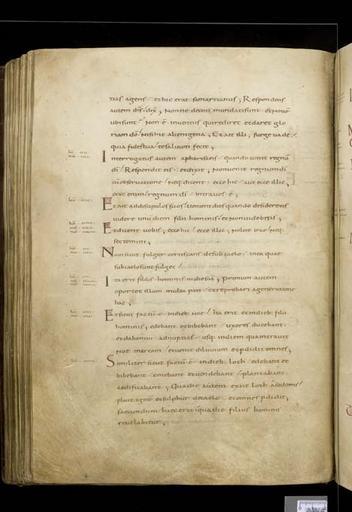 tias agens · et hic erat samaritanus ; Respondens
autem ihs dix ; Nonne decem mundati sunt et novem
ubi sunt ; Non ē inventus qui rediret et daret glo
riam dō nisi hic alienigena ; Et ait illi ; surge vade
quia fides tua te salvum fecit ;
Interrogatus autem a pharisaeis · quando venit regnū
dī ; Respondit eis et dixit ; Non venit regnum dī
cū observatione neq; dicent · ecce hic aut ecce illic ;
ecce enim regnum dī intra vos ē ;
Et ait ad discipulos suos ; Venient dies quando desideretis
videre unū diem filii hominis et non videbitis ;
Et dicent vobis ; ecce hic · ecce illic ; nolite ire neq;
sectemini ;
Nam sicut fulgor coruscans de sub caelo · in ea quae
sub caelo sunt fulget ;
Ita erit filius hominis in die sua ; Primum autem
oportet illum multa pati · et reprobari a generatione
hac ;
Et sicut factū ē in dieb; noe / ita erit et in dieb; filii
hominis ; edebant et bibebant · uxores ducebant ·
et dabantur ad nuptias · usq; in diem qua intravit
noe in arcam · et venit diluvium et pdidit omnes ;
Similiter sicut factū ē in dieb; loth · edebant et
bibebant · emebant et vendebant / plantabant
aedificabant ; Qua die autem exiit loth a sodomis /
pluit ignē et sulphur de caelo · et omnes pdidit ;
secundum haec erit qua die filius hominis
revelabitur ;